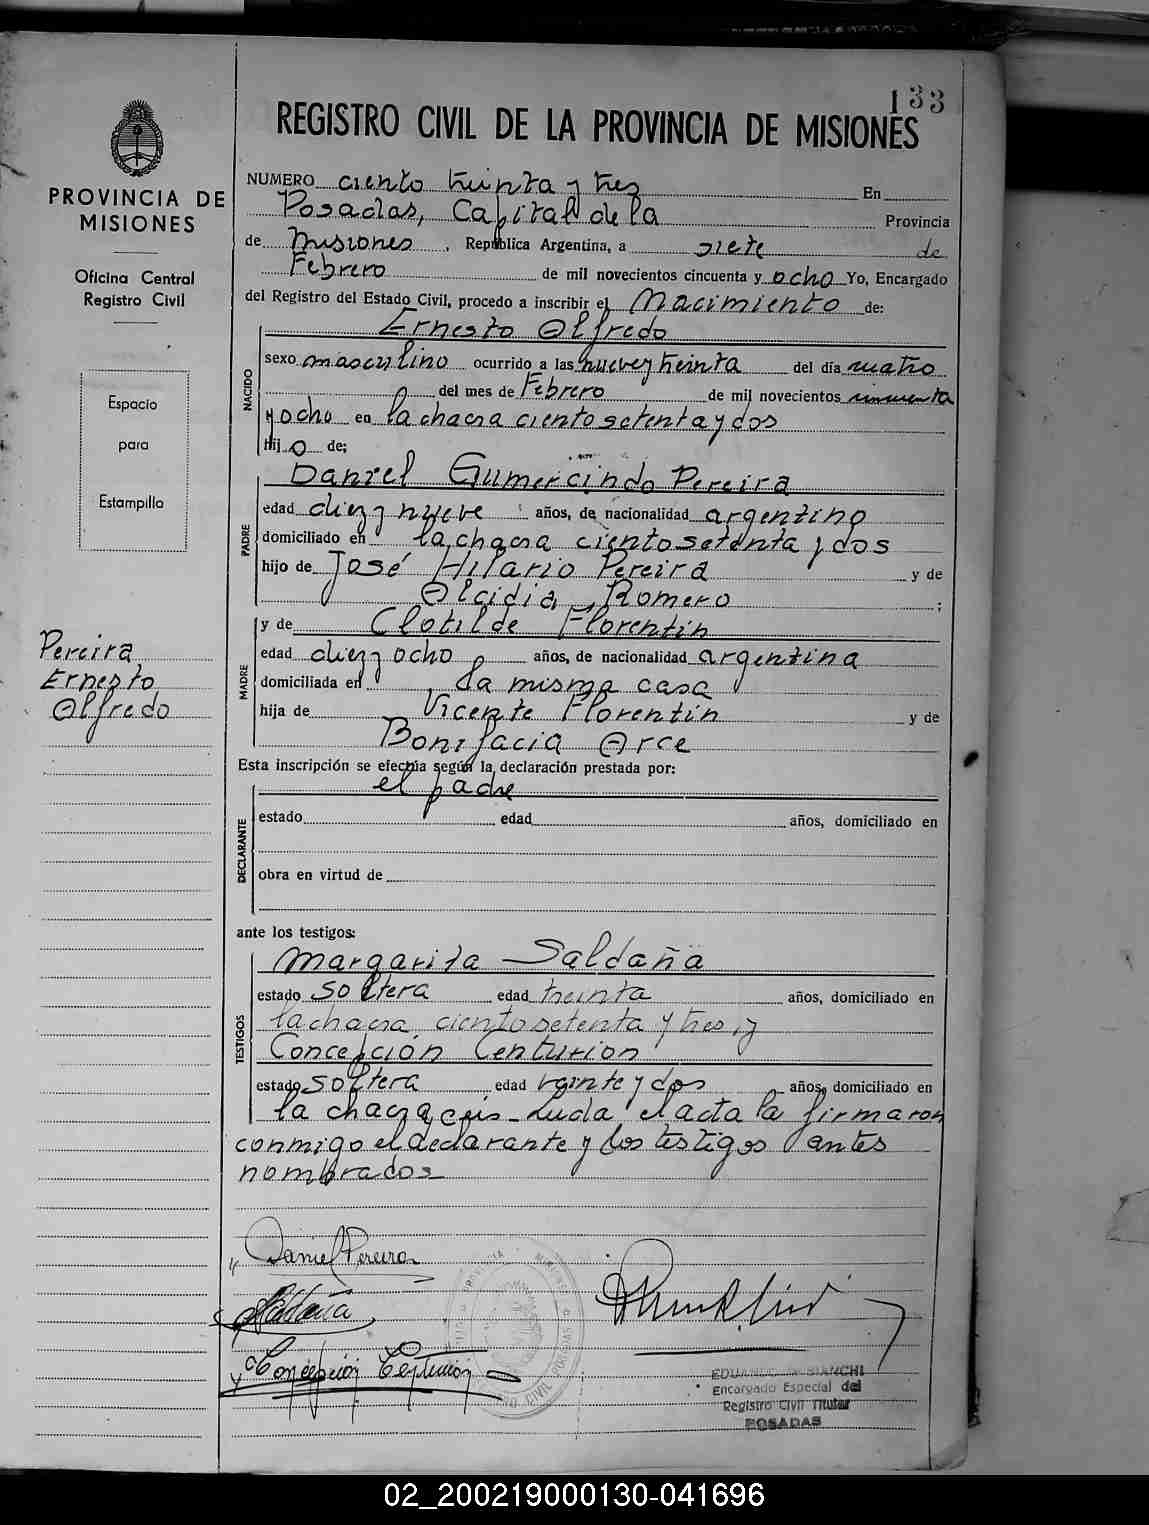 133
REGISTRO CIVIL DE LA PROVINCIA DE MISIONES
PROVINCIA DE
MISIONES
Oficina Central
Registro Civil
Espacio
para
Estampilla
Pereira
Ernesto
Alfredo
NUMERO ciento treinta y tres En
Posadas, Capital de la Provincia
de Misiones, República Argentina, a siete de
Febrero de mil novecientos cincuenta y ocho Yo, Encargado
del Registro del Estado Civil, procedo a inscribir el Nacimiento de:
NACIDO
Ernesto Alfredo
sexo masculino ocurrido a las nueve y treinta del día cuatro
del mes de Febrero de mil novecientos cincuenta
y ocho en la chacra ciento setenta y dos
Hijo de;
PADRE
Daniel Gumercindo Pereira
edad diez y nueve años, de nacionalidad argentino
domiciliado en la chacra ciento setenta y dos
hijo de José Hilario Pereira y de
Alcidia Romero ;
MADRE
y de Clotilde Florentín
edad diez y ocho años, de nacionalidad argentina
domiciliada en la misma casa
hija de Vicente Florentín y de
Bonifacia Arce
Esta inscripción se efectúa según la declaración prestada por:
DECLARANTE
el padre
estado edad años, domiciliado en
obra en virtud de
ante los testigos:
TESTIGOS
Margarita Saldaña
estado soltera edad treinta años, domiciliado en
la chacra ciento setenta y tres, y
Concepción Centurion
estado soltera edad veinte y dos años, domiciliado en
la chacra seis. Leida el acta la firmaron
conmigo el declarante y los testigos antes
nombrados
Daniel Pereira
Saldaña
Concepción Centurión
BIANCHI
Encargado Especial del
Registro Civil Titular
POSADAS
02_200219000130-041696